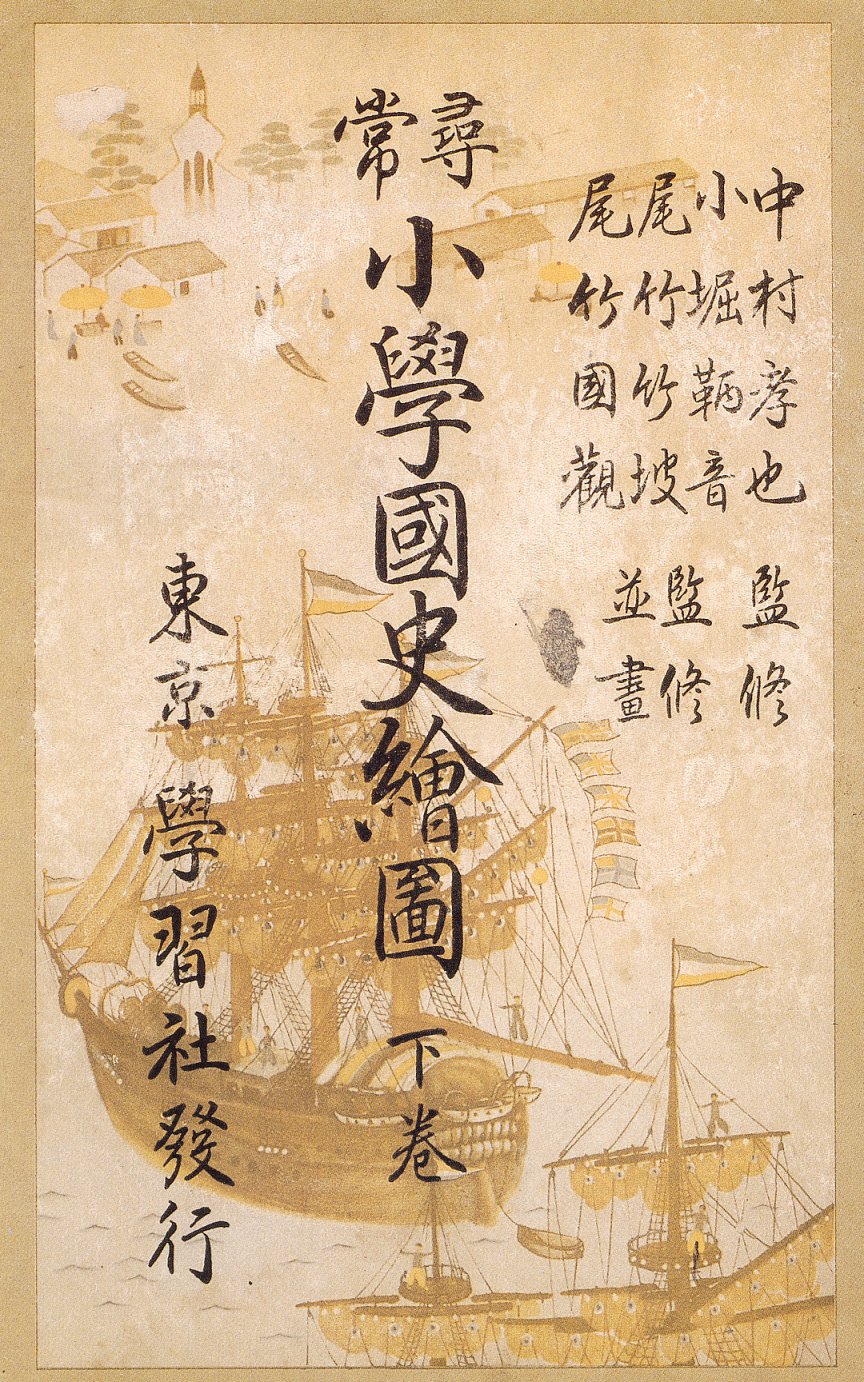 中村孝也 監修
小堀鞆音 監修
尾竹竹坡
尾竹國觀 並畫
尋常
小學國史繪圖 下卷
東京 學習社發行